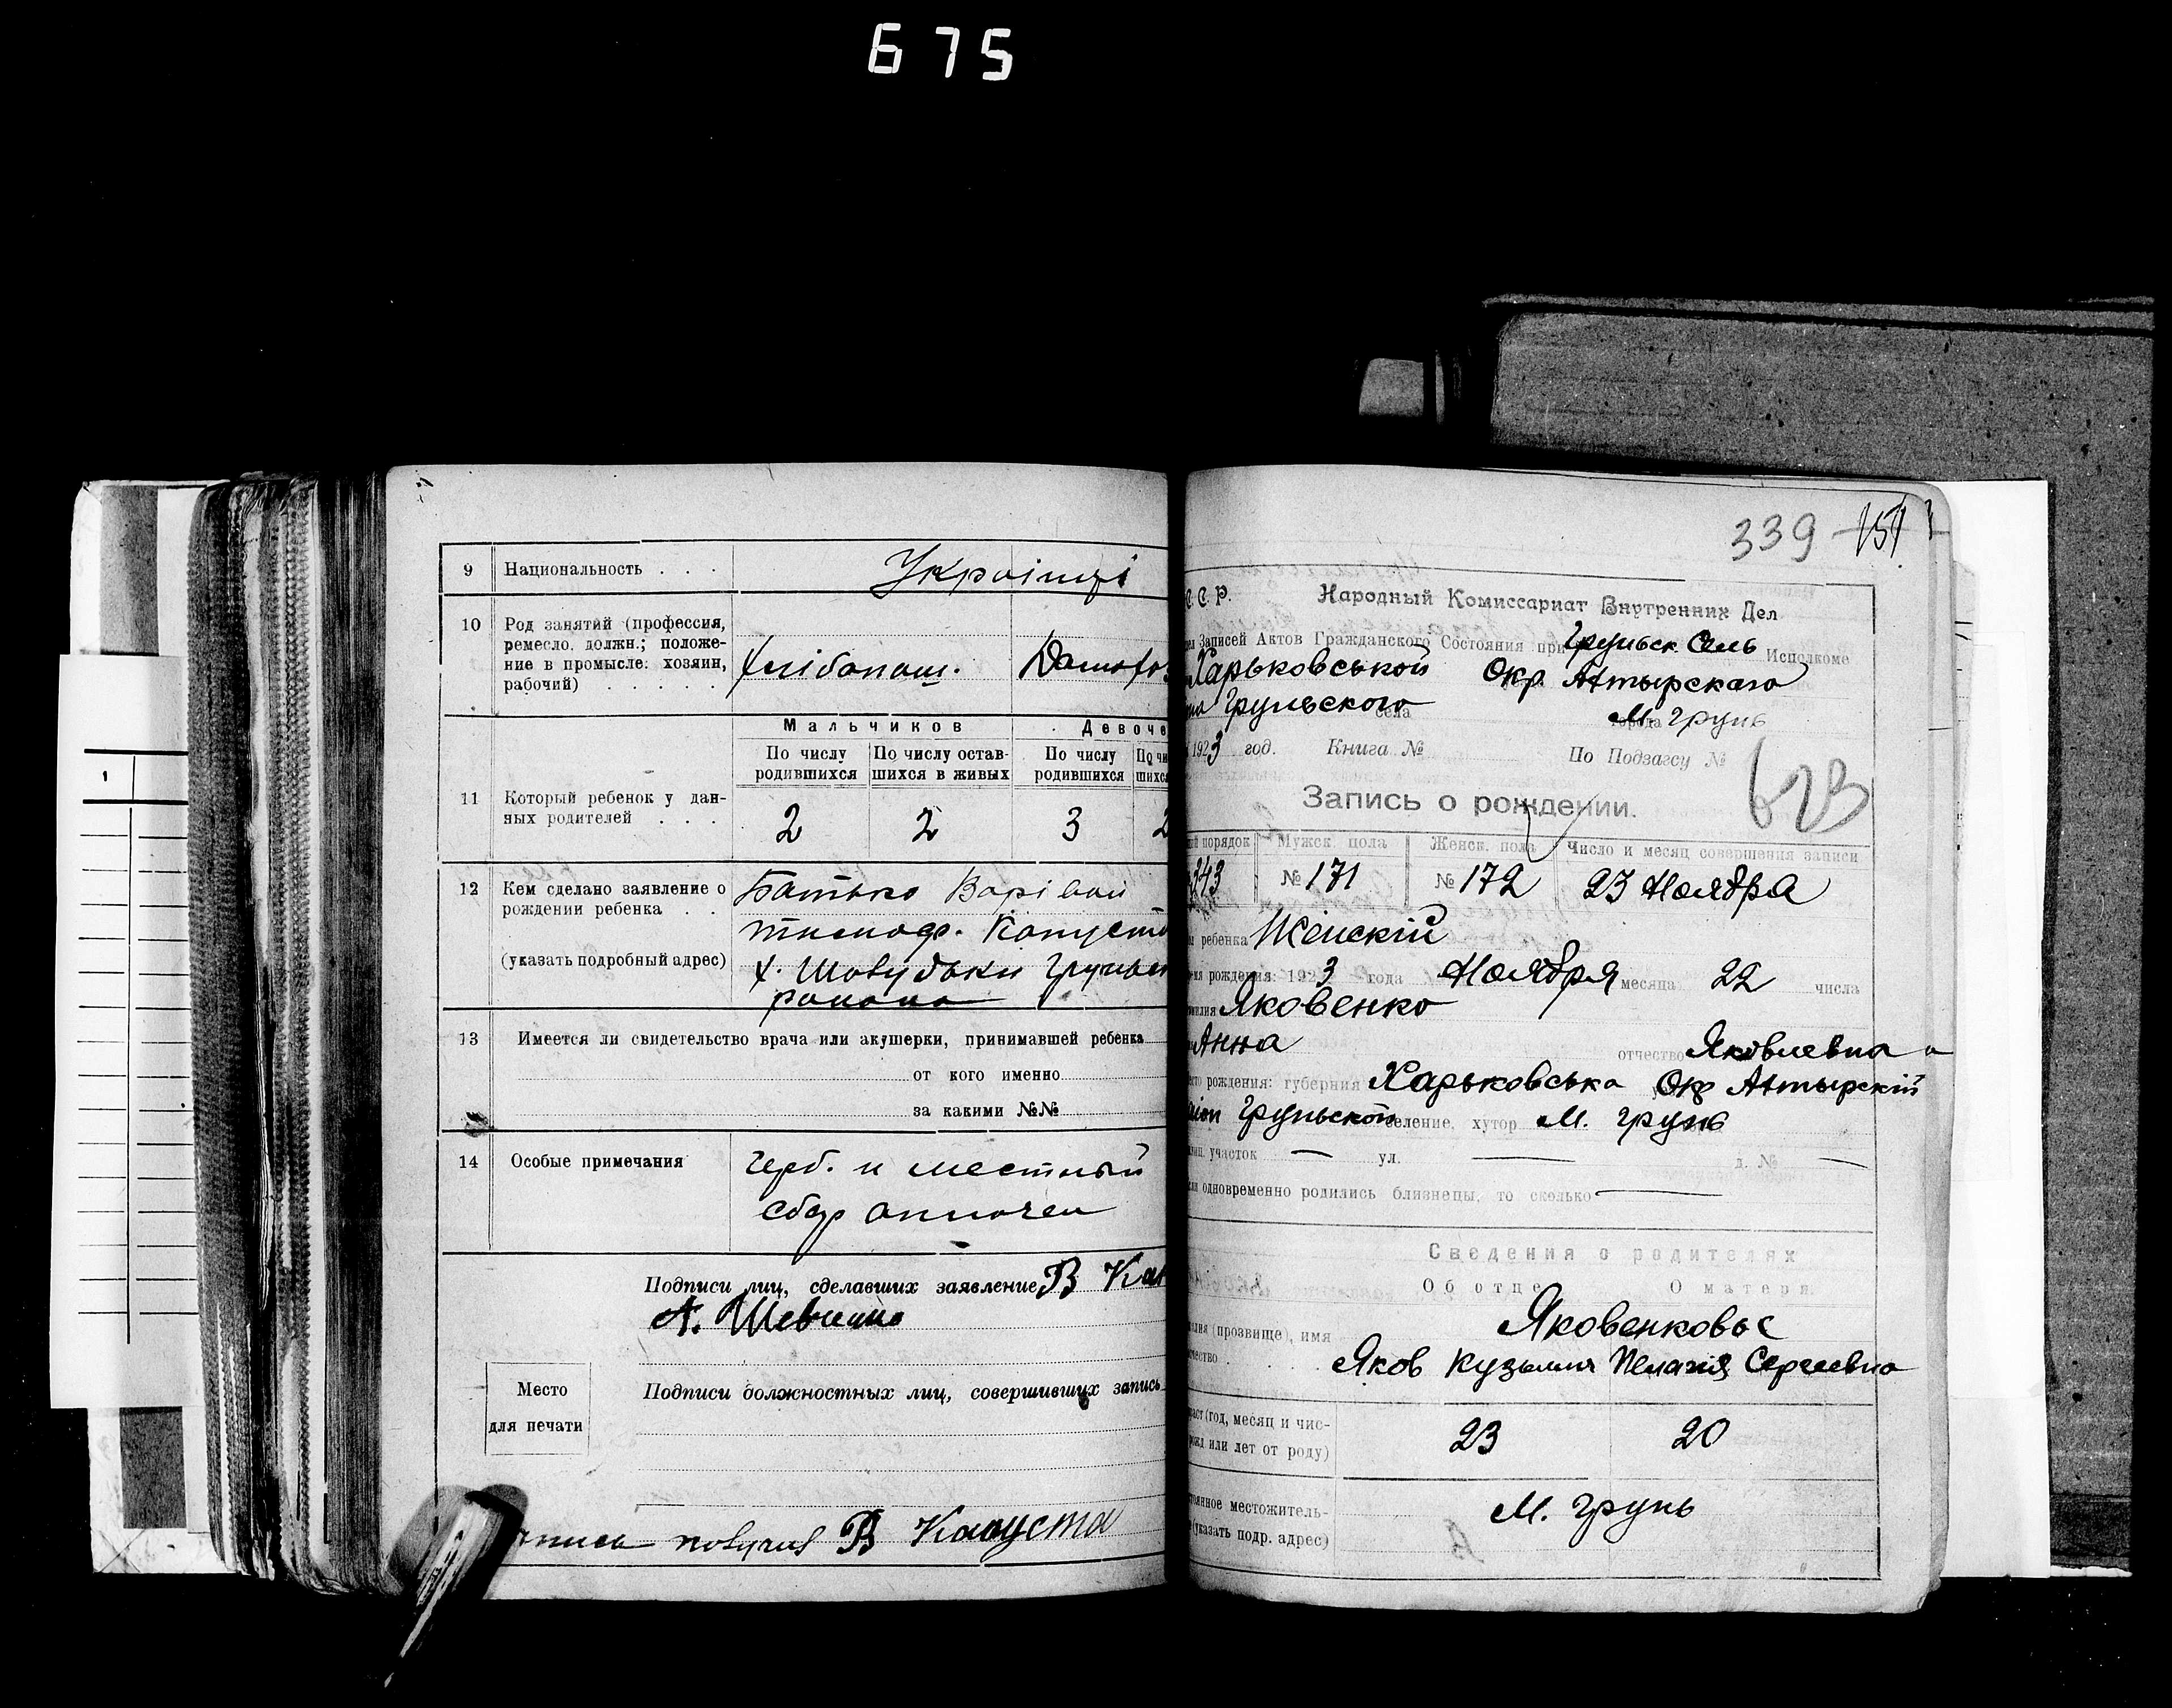 675
9 Национальность . . . Українці
10 Род занятий (профессия,
ремесло, должн.; положе-
ние в промысле: хозяин,
рабочий) . . . . .
хлібопаш.
Мальчиков Девоче
По числу родившихся По числу остав-шихся в живых По числу родившихся
11 Который ребенок у дан-
ных родителей . . .
2 2 3 2
12 Кем сделано заявление о
рождении ребенка . .
(указать подробный адрес)
Батько
13 Имеется ли свидетельство врача или акушерки, принимавшей ребенка
от кого именно
за какими №№
14 Особые примечания
Герб. и местный
сбор
Подписи лиц, сделавших заявление В Кап
А.
Место
для печати
Подписи должностных лиц, совершивших запись
В Капуста
339 151
С. С. Р. Народный Комиссариат Внутренних Дел
Записей Актов Гражданского Состояния при Груньск Сель Исполкоме
Харьковськой Окр. Ахтырскаго
Груньского села города М. Грунь
1923 год. Книга № По Подзагсу №
623
Запись о рождении.
порядок Мужск. пола Женск. пола Число и месяц совершения записи
243 № 171 № 172 23 Ноября
ребенка Женскій
рождения: 1923 года Ноября месяца 22 числа
Яковенко
Анна отчество Яковлевна
рождения: губерния Харьковська Окр Ахтырскій
Груньской селение, хутор М. Грунь
участок — ул. — д. № —
одновременно родились близнецы, то сколько —
Сведения о родителях
Об отце О матери
(прозвище), имя
Яковенковы
Яков Кузьмич Пелагия Сергеевна
(год, месяц и чис-
или лет от роду)
23 20
местожитель-
(указать подр. адрес)
М. Грунь